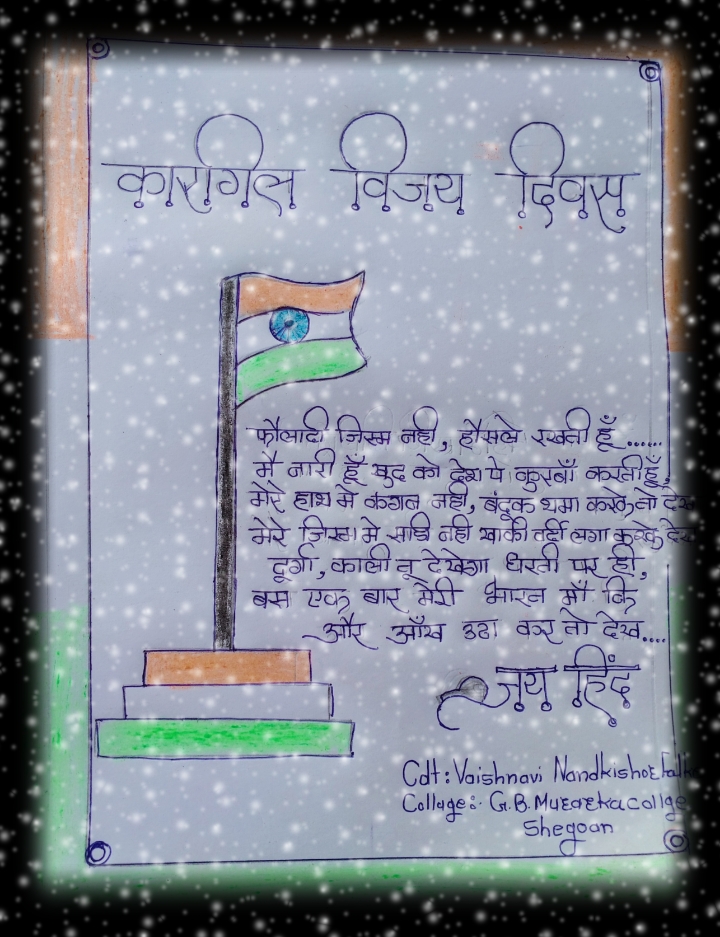 कारगिल विजय दिवस
फौलादी जिस्म नही, हौसले रखती हूँ......
मै नारी हूँ खुद को देश पे कुरबाँ करती हूँ,
मेरे हाथ मे कंगन नही, बंदूक थमा करके तो देख
मेरे जिस्म मे साडी नही खाकी वर्दी लगा करके देख
दूर्गा, काली तू देखेगा धरती पर ही,
बस एक बार मेरी भारत माँ कि
और आँख उठा कर तो देख....
जय हिंद
Cdt: Vaishnavi Nandkishor
Collage:- G.B. Murarka collge
Shegoan